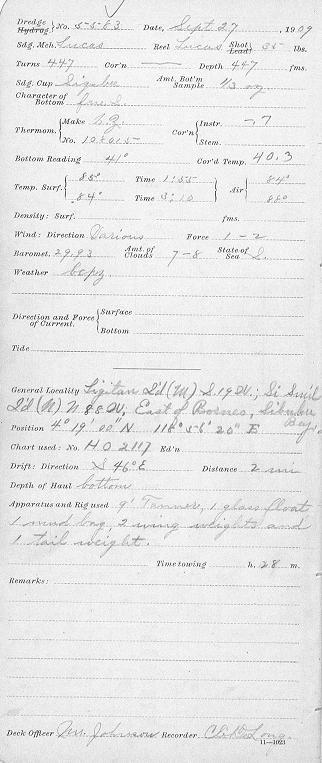 Dredge
Hydrog No. 5583 Date, Sept. 27, 1909
Sdg. Mch. Lucas Reel Lucas Shot Lead 35 lbs.
Turns 447 Cor'n Depth 447 fms.
Sdg. Cup Sigsbee Amt. Bot'm Sample 1/3 oz
Character of Bottom fne. S.
Thermom. Make Instr. -.7
No. Cor'n Stem.
Bottom Reading 41° Cor'd Temp. 40.3
Temp. Surf. 85° Time 1:55 Air 84°
84° Time 3:10 88°
Density: Surf. fms.
Wind: Direction Various Force 1-2
Baromet. 29.93 Amt. of Clouds 7-8 State of Sea S.
Weather bcpz
Direction and Force of Current. Surface
Bottom
Tide
General Locality Sigitan Id (M) S. 19 W.; Si Amil
Id (N) N 88 W; East of Borneo, Sibuko Bay.
Position 4° 19' 00" N 118° 56' 20" E
Chart used: No. H.O 2117 Ed'n
Drift: Direction S 46° E Distance 2 mi
Depth of Haul bottom
Apparatus and Rig used 9' Tanner, 1 glass float
1 mud bag, 2 wing weights and
1 tail weight.
Time towing h. 28 m.
Remarks:
Deck Officer Johnson Recorder
11-1023